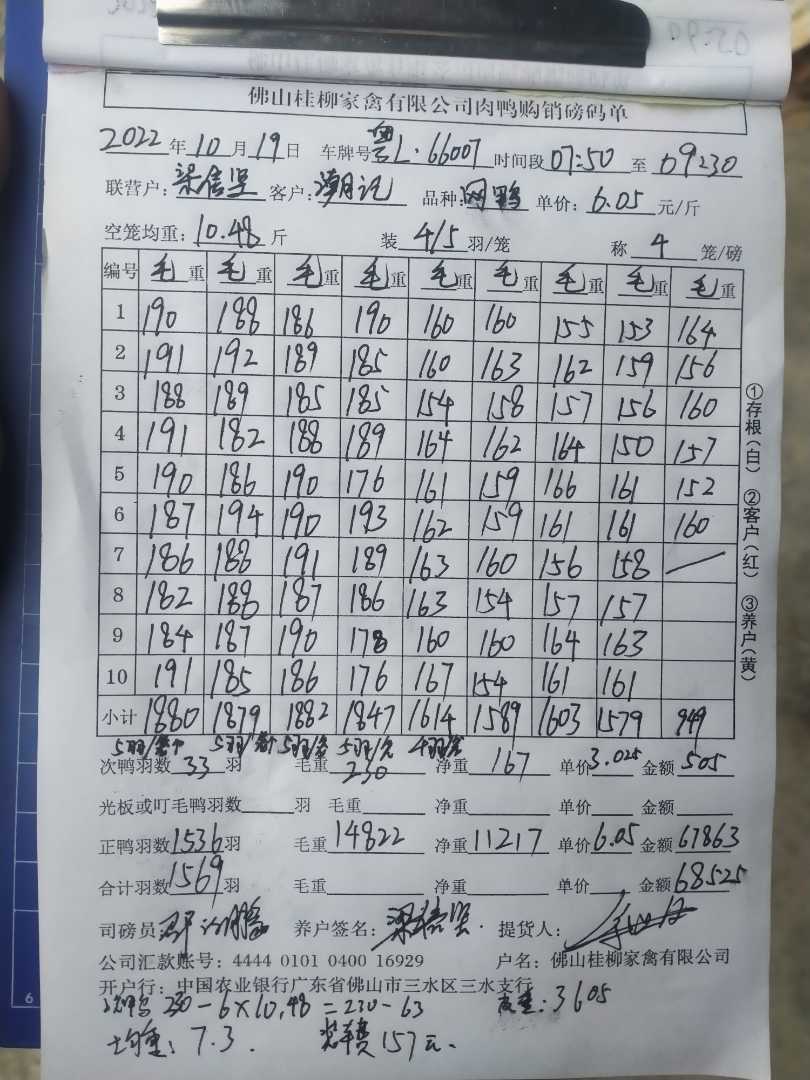 佛山桂柳家禽有限公司肉鸭购销磅码单
2022年10月19日 车牌号粤L·66007时间段07:50至09230
联营户:梁信坚 客户:潮记 品种: 单价:6.05元/斤
空笼均重:10.48斤 装4/5羽/笼 称4笼/磅
编号 毛重 毛重 毛重 毛重 毛重 毛重 毛重 毛重 毛重
1 190 188 186 190 160 160 155 153 164
2 191 192 189 185 160 163 162 159 156
3 188 189 185 185 154 158 157 156 160
4 191 182 188 189 164 162 164 150 157
5 190 186 190 176 161 159 166 161 152
6 187 194 190 193 162 159 161 161 160
7 186 188 191 189 163 160 156 158 —
8 182 188 187 186 163 154 157 157
9 184 187 190 178 160 160 164 163
10 191 185 186 176 167 154 161 161
小计 1880 1879 1882 1847 1614 1589 1603 1579 949
5羽/ 5羽/ 5羽/ 5羽/ 4羽/
次鸭羽数33羽 毛重230 净重167 单价3.025 金额505
光板或叮毛鸭羽数 羽 毛重 净重 单价 金额
正鸭羽数1536羽 毛重14822 净重11217 单价6.05 金额67863
合计羽数1569羽 毛重 净重 单价 金额68525
司磅员: 养户签名:梁信坚 提货人:
公司汇款账号:4444 0101 0400 16929 户名:佛山桂柳家禽有限公司
开户行:中国农业银行广东省佛山市三水区三水支行
次鸭 230-6×10.48=230-63 皮重:3605
均重:7.3. 装车费157元.
①存根(白) ②客户(红) ③养户(黄)
6